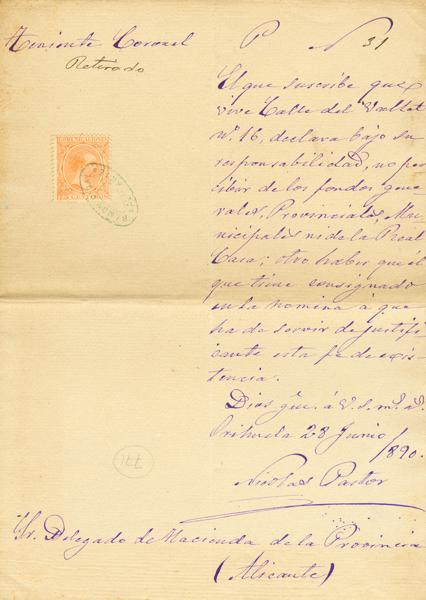 Teniente Coronel P N 31
Retirado
El que suscribe que
vive Calle del Vallet
nº. 16, declara bajo su
responsabilidad, no per
cibir de los fondos gene
rales, Provinciales, Mu
nicipales ni de la Real
Casa; otro haber que el
que tiene consignado
en la nomina á que
ha de servir de justifi
cante esta fe de exis
tencia.
Dios gue. á V. S. ms. as.
Orihuela 28 Junio
/890.
Nicolas Pastor
Sr. Delegado de Hacienda de la Provincia
(Alicante)
COMUNICACIONES
771